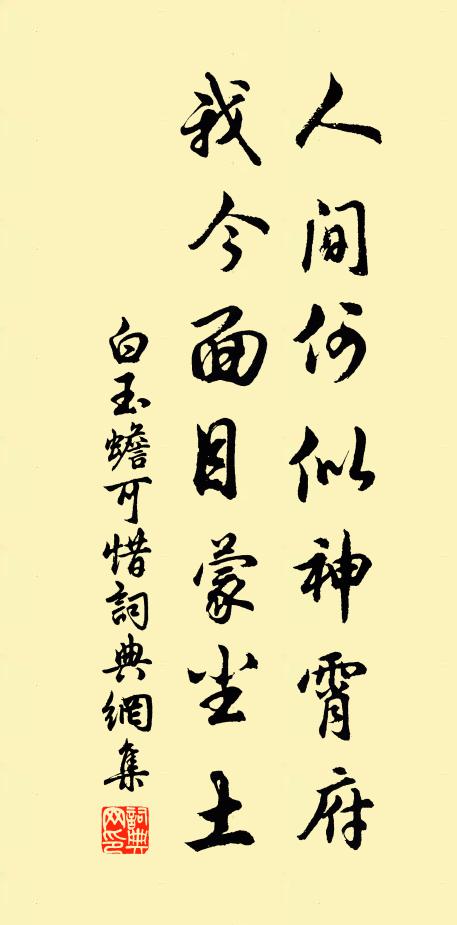 人間何似神霄府
我今面目蒙尘土
白玉蟾可惜詞典網集
詞典網印